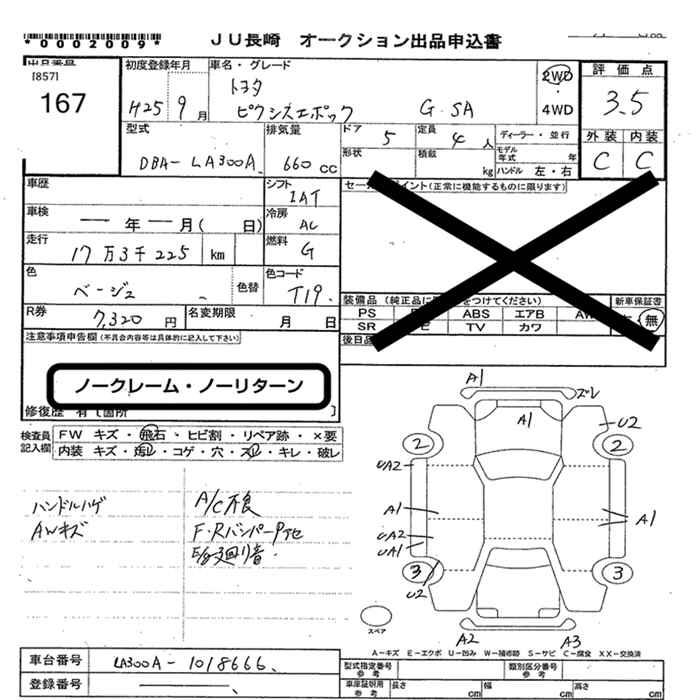 *0002009*
JU長崎 オークション出品申込書
[857]
167
初度登録年月
H25 9月
車名・グレード
トヨタ
ピクシスエポック G・SA
2WD
・
4WD
評価点
3.5
外装 内装
C C
型式
DBA- LA300A
排気量
660 CC
ドア 5
定員 4人
ディーラー・並行
形状
積載 kg
モデル年式 年
ハンドル 左・右
車歴
シフト
IAT
車検
― 年 ― 月( 日)
冷房
AC
走行
17万3千225 km
燃料
G
色
ベージュ
色替
色コード
T19
R券
7,320 円
名変期限
月 日
装備品(純正品に
をつけてください)
新車保証書
PS
ABS
エアB
SR
TV
カワ
無
注意事項申告欄(不具合内容等は具体的に記入して下さい)
ノークレーム・ノーリターン
修復歴 有[箇所 ]
検査員記入欄
FW キズ・飛石・ヒビ割・リペア跡・×要
内装 キズ・汚レ・コゲ・穴・スレ・キレ・破レ
ハンドルハゲ
AWキズ
A/C不良
F・Rバンパー
E/g廻り音
A1
ズレ
A1
U2
2
2
UA2
A1
A1
UA2
UA1
3
3
U2
スペア
A2
A3
A-キズ E-エクボ U-凹み W-補修跡 S-サビ C-腐食 XX-交換済
車台番号
LA300A-1018666
登録番号
型式指定番号 参考
類別区分番号 参考
車庫証明用 参考
長さ cm
幅 cm
高さ cm